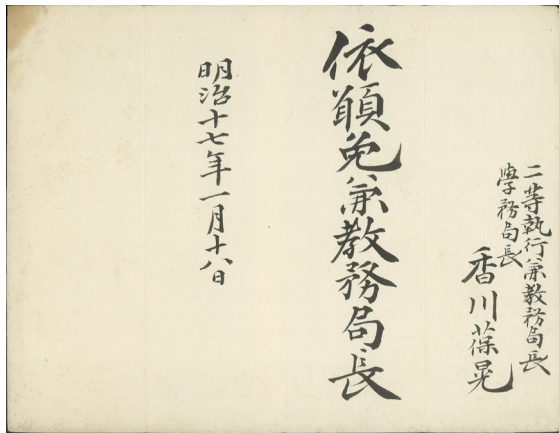 二等執行兼教務局長
學務局長
香川葆晃
依願免兼教務局長
明治十七年一月十八日